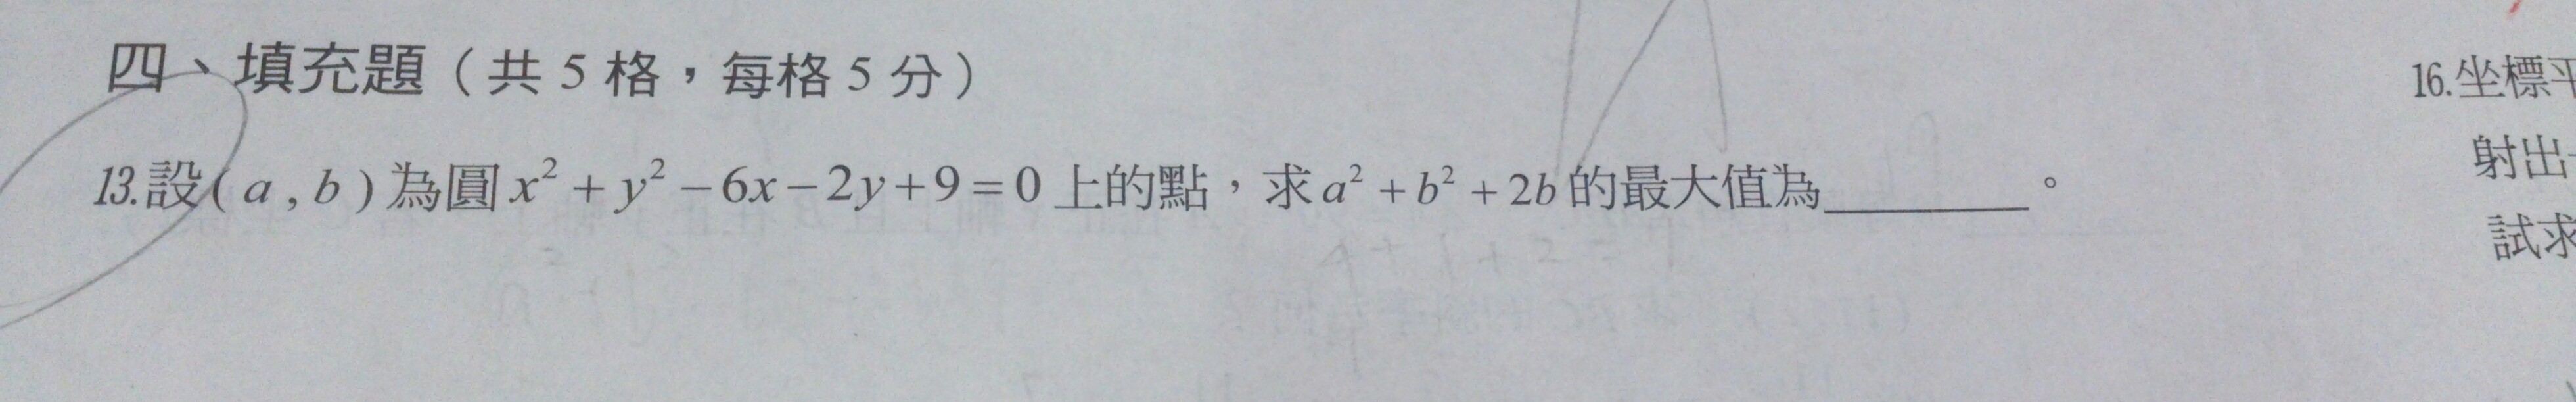 四、填充題（共 5 格，每格 5 分）
13.設( a , b ) 為圓 x² + y² − 6x − 2y + 9 = 0 上的點，求 a² + b² + 2b 的最大值為________。
16.坐標平
射出
試求